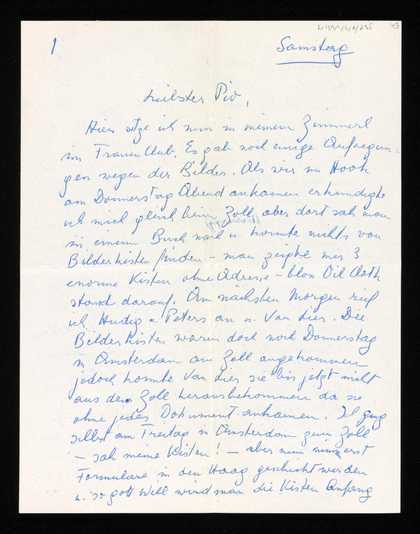 1
Samstag
Liebster Piv,
Hier sitze ich nun in meinem Zimmerl
im Frauenclub. Es gab noch einige Aufregun-
gen wegen der Bilder. Als wir in Hook
am Donnerstag Abend ankamen erkundigte
ich mich gleich beim Zoll, aber dort sah man
in einem Buch nach u. konnte nichts von
Bilderkisten finden – man zeigte mir 3
enorme Kisten ohne Adresse – blos Oil Cloth
stand darauf. Am nächsten Morgen rief
ich Hudig u Peters an u. Van Lier. Die
Bilderkisten waren doch noch Donnerstag
in Amsterdam am Zoll angekommen
jedoch konnte Van Lier sie bis jetzt nicht
aus dem Zoll herausbekommen da sie
ohne jedes Dokument ankamen. Ich ging
selbst am Freitag in Amsterdam zum Zoll
– sah meine Kisten! – aber nun muss erst
Formulare in den Haag geschickt werden
u. so Gott will wird man die Kisten Anfang